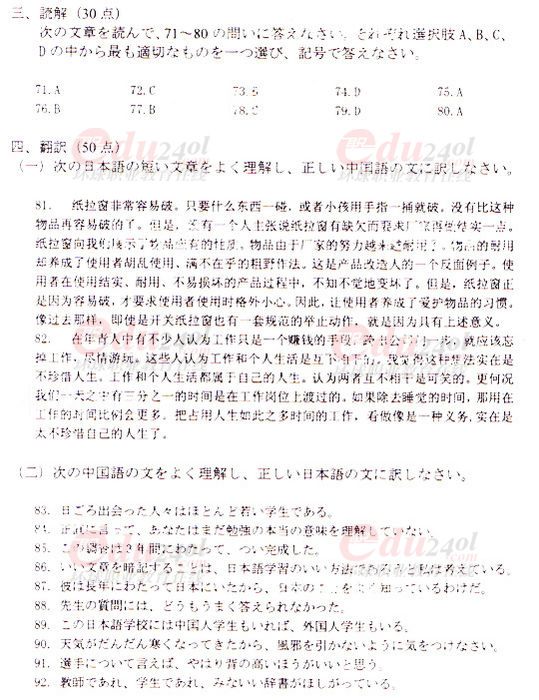 三、読解（30点）
次の文章を読んで、71～80の問いに答えなさい。それぞれ選択肢A、B、C、
Dの中から最も適切なものを一つ選び、記号で答えなさい。
71.A 72.C 73.B 74.D 75.A
76.B 77.B 78.C 79.D 80.A
四、翻訳（50点）
（一）次の日本語の短い文章をよく理解し、正しい中国語の文に訳しなさい。
81. 纸拉窗非常容易破。只要什么东西一碰，或者小孩用手指一捅就破。没有比这种
物品再容易破的了。但是，没有一个人主张说纸拉窗有缺欠而要求厂家再做结实一点。
纸拉窗向我们展示了物品应有的性质。物品由于厂家的努力越来越耐用了。物品的耐用
却养成了使用者胡乱使用、满不在乎的粗野作法。这是产品改造人的一个反面例子。使
用者在使用结实、耐用、不易损坏的产品过程中，不知不觉地变坏了。但是，纸拉窗正
是因为容易破，才要求使用者使用时格外小心。因此，让使用者养成了爱护物品的习惯。
像过去那样，即使是开关纸拉窗也有一套规范的举止动作，就是因为具有上述意义。
82. 在年青人中有不少人认为工作只是一个赚钱的手段，跨出公司门一步，就应该忘
掉工作，尽情游玩。这些人认为工作和个人生活是互不相干的。我觉得这种想法实在是
不珍惜人生。工作和个人生活都属于自己的人生。认为两者互不相干是可笑的。更何况
我们一天之中有三分之一的时间是在工作岗位上渡过的。如果除去睡觉的时间，那用在
工作的时间比例会更多。把占用人生如此之多时间的工作，看做像是一种义务，实在是
太不珍惜自己的人生了。
（二）次の中国語の文をよく理解し、正しい日本語の文に訳しなさい。
83. 日ごろ出会った人々はほとんど若い学生である。
84. 正直に言って、あなたはまだ勉強の本当の意味を理解していない。
85. この調密は3年間にわたって、つい完成した。
86. いい文章を暗記することは、日本語学習のいい方法であろうと私は考えている。
87. 彼は長年にわたって日本にいたから、日本のことをよく知っているわけだ。
88. 先生の質問には、どうもうまく答えられなかった。
89. この日本語学校には中国人学生もいれば、外国人学生もいる。
90. 天気がだんだん寒くなってきたから、風邪を引かないように気をつけなさい。
91. 選手について言えば、やはり背の高いほうがいいと思う。
92. 教師であれ、学生であれ、みないい辞書がほしがっている。
edu24ol
环球职业教育在线
edu24ol
.com
环球职业教育在线